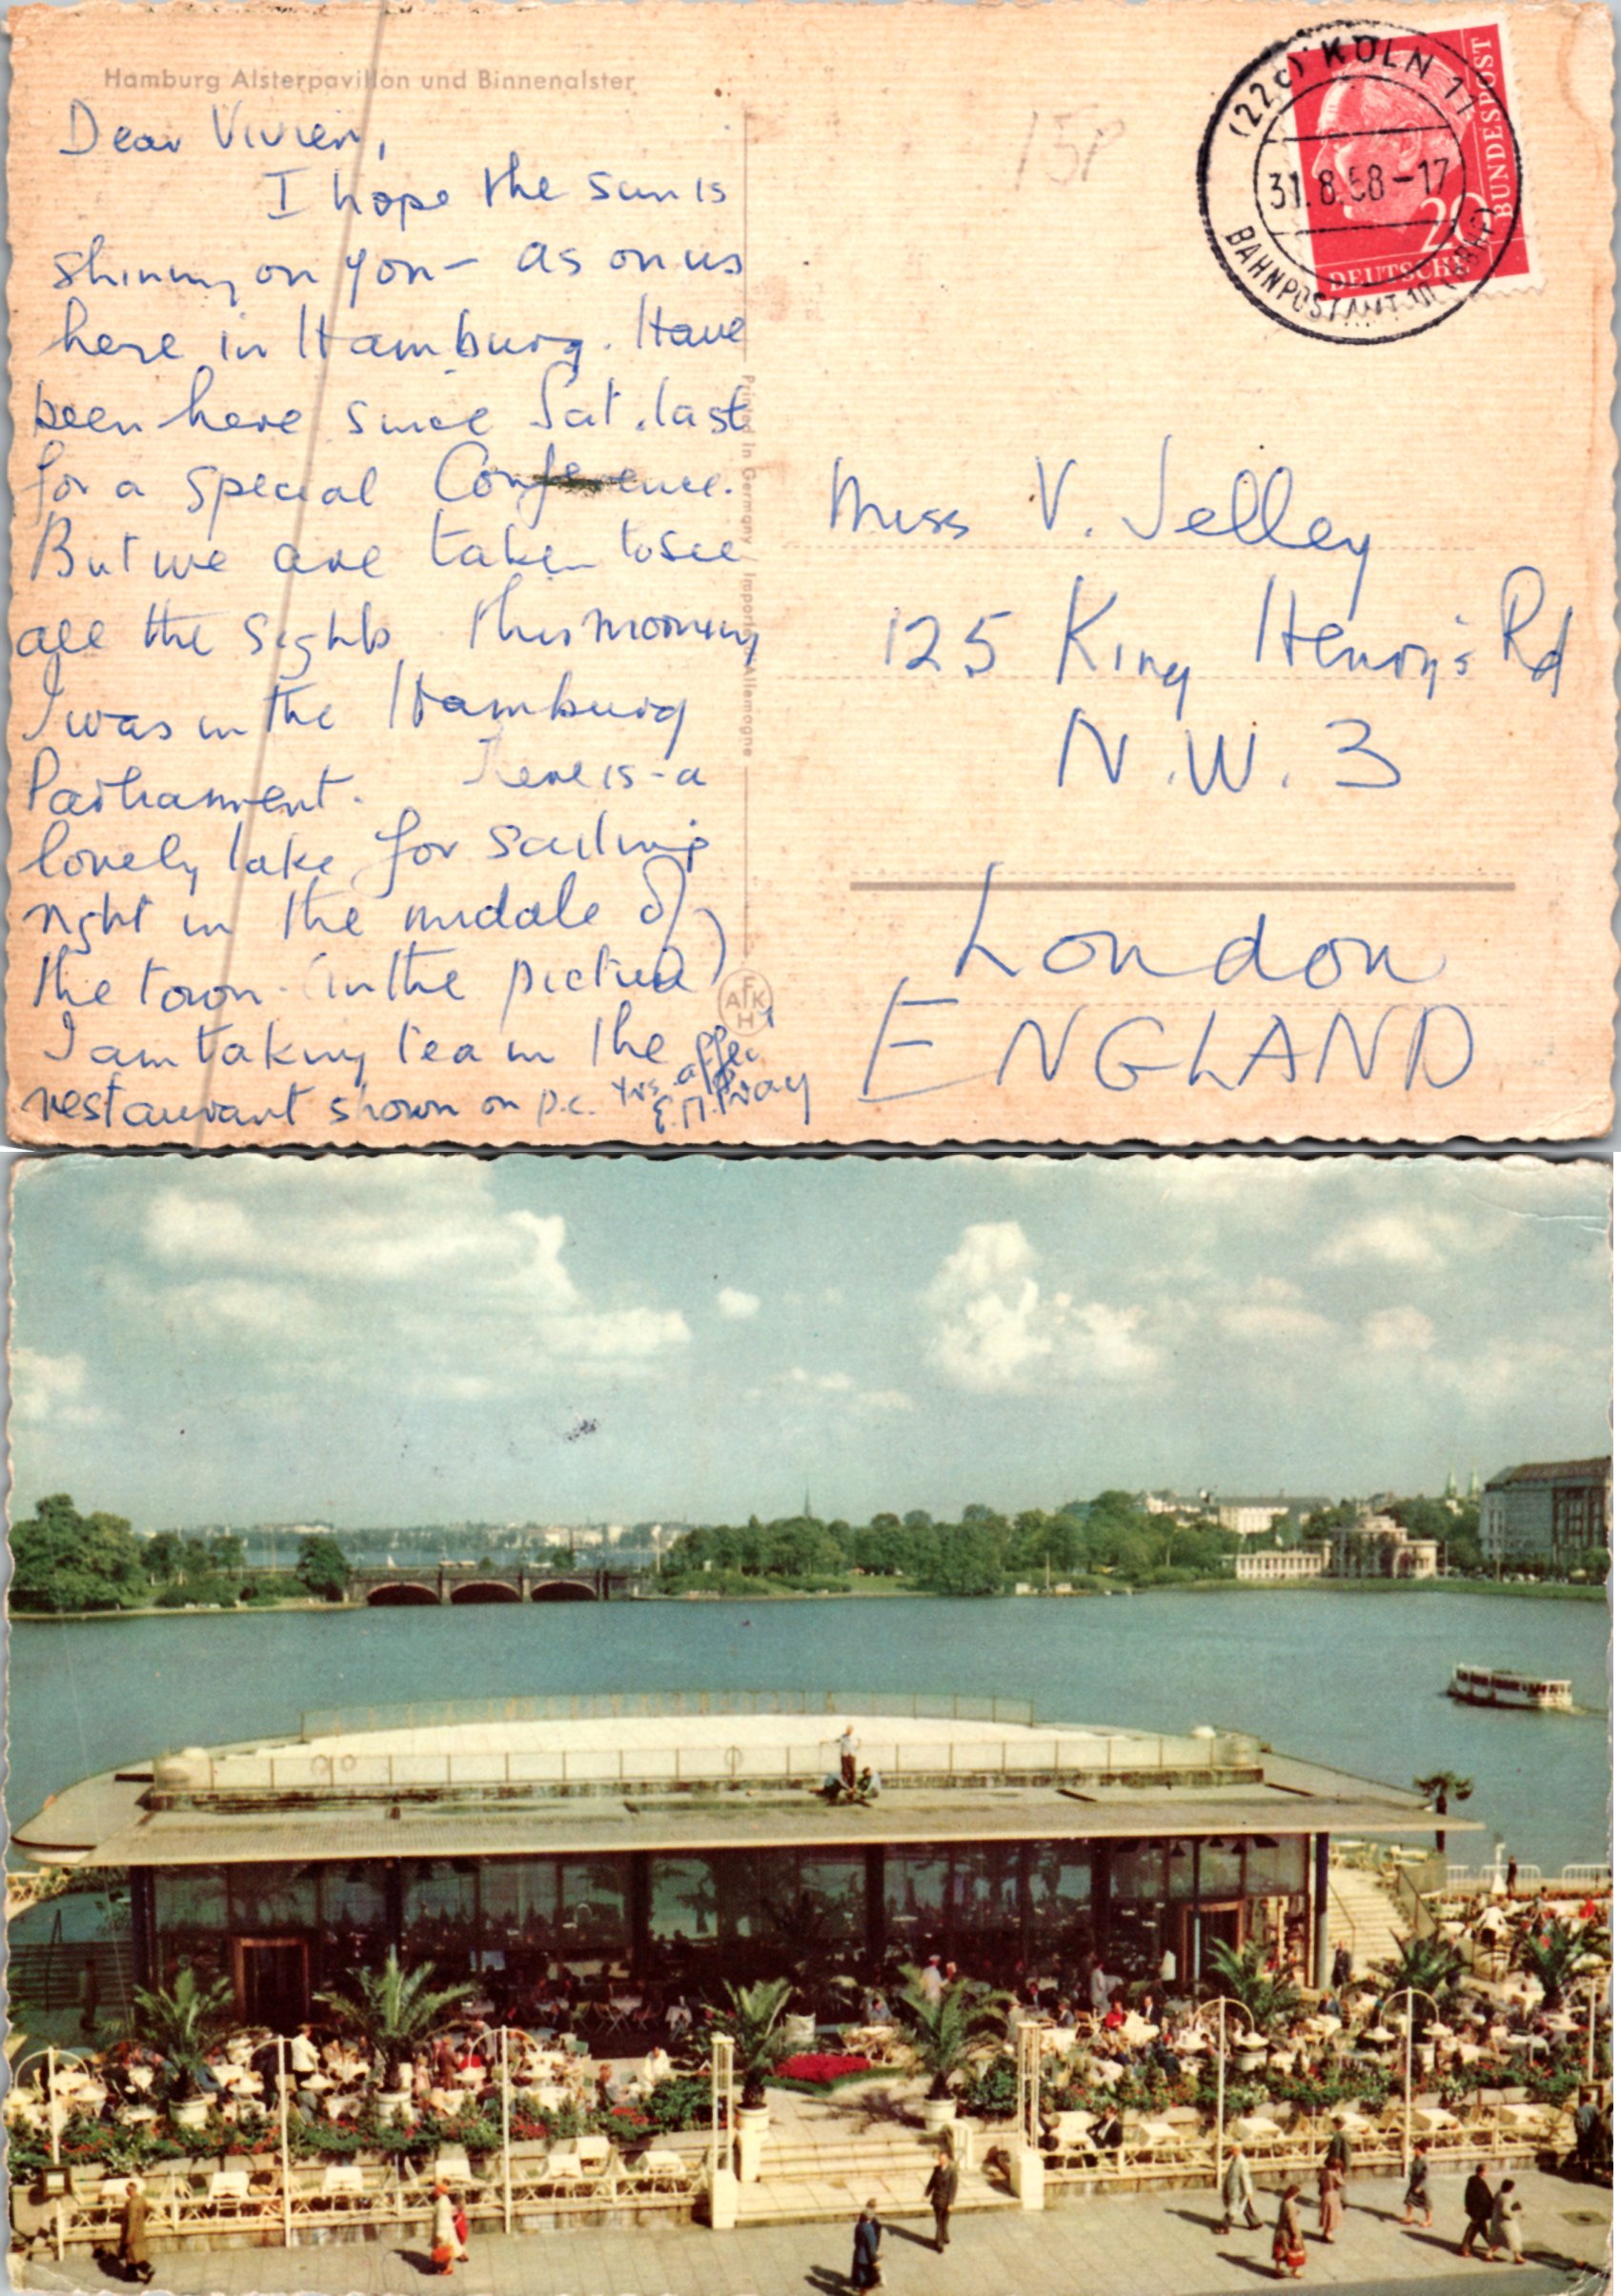 Hamburg Alsterpavillon und Binnenalster
Dear Vivien,
I hope the sun is
shining on you – as on us
here in Hamburg. Have
been here since Sat. last
for a special Conference.
But we are taken to see
all the sights. This morning
I was in the Hamburg
Parliament. There is a
lovely lake for sailing
right in the middle of
the town. (in the picture)
I am taking tea in the
restaurant shown on p.c. Yrs. affec.
E.M.
Printed in Germany / Importé d'Allemagne
AFKH
15P
(22c) KÖLN 11
31.8.58-17
BAHNPOSTAMT 10
20
DEUTSCHE
BUNDESPOST
Miss V. Jelley
125 King Henry's Rd
N.W. 3
London
ENGLAND